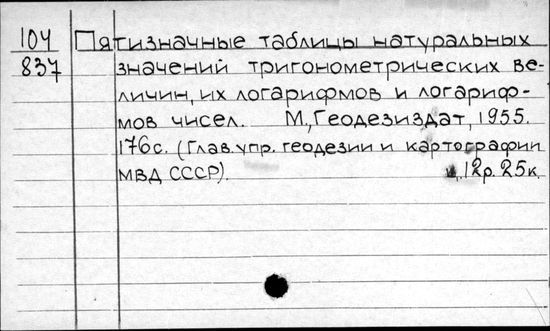 104 Пятизначные таблицы натуральных
837 значений тригонометрических ве-
личин, их логарифмов и логариф-
мов чисел. М., Геодезиздат, 1955.
176с. (Глав. упр. геодезии и картографии
МВД СССР). ц. 12р. 25к.